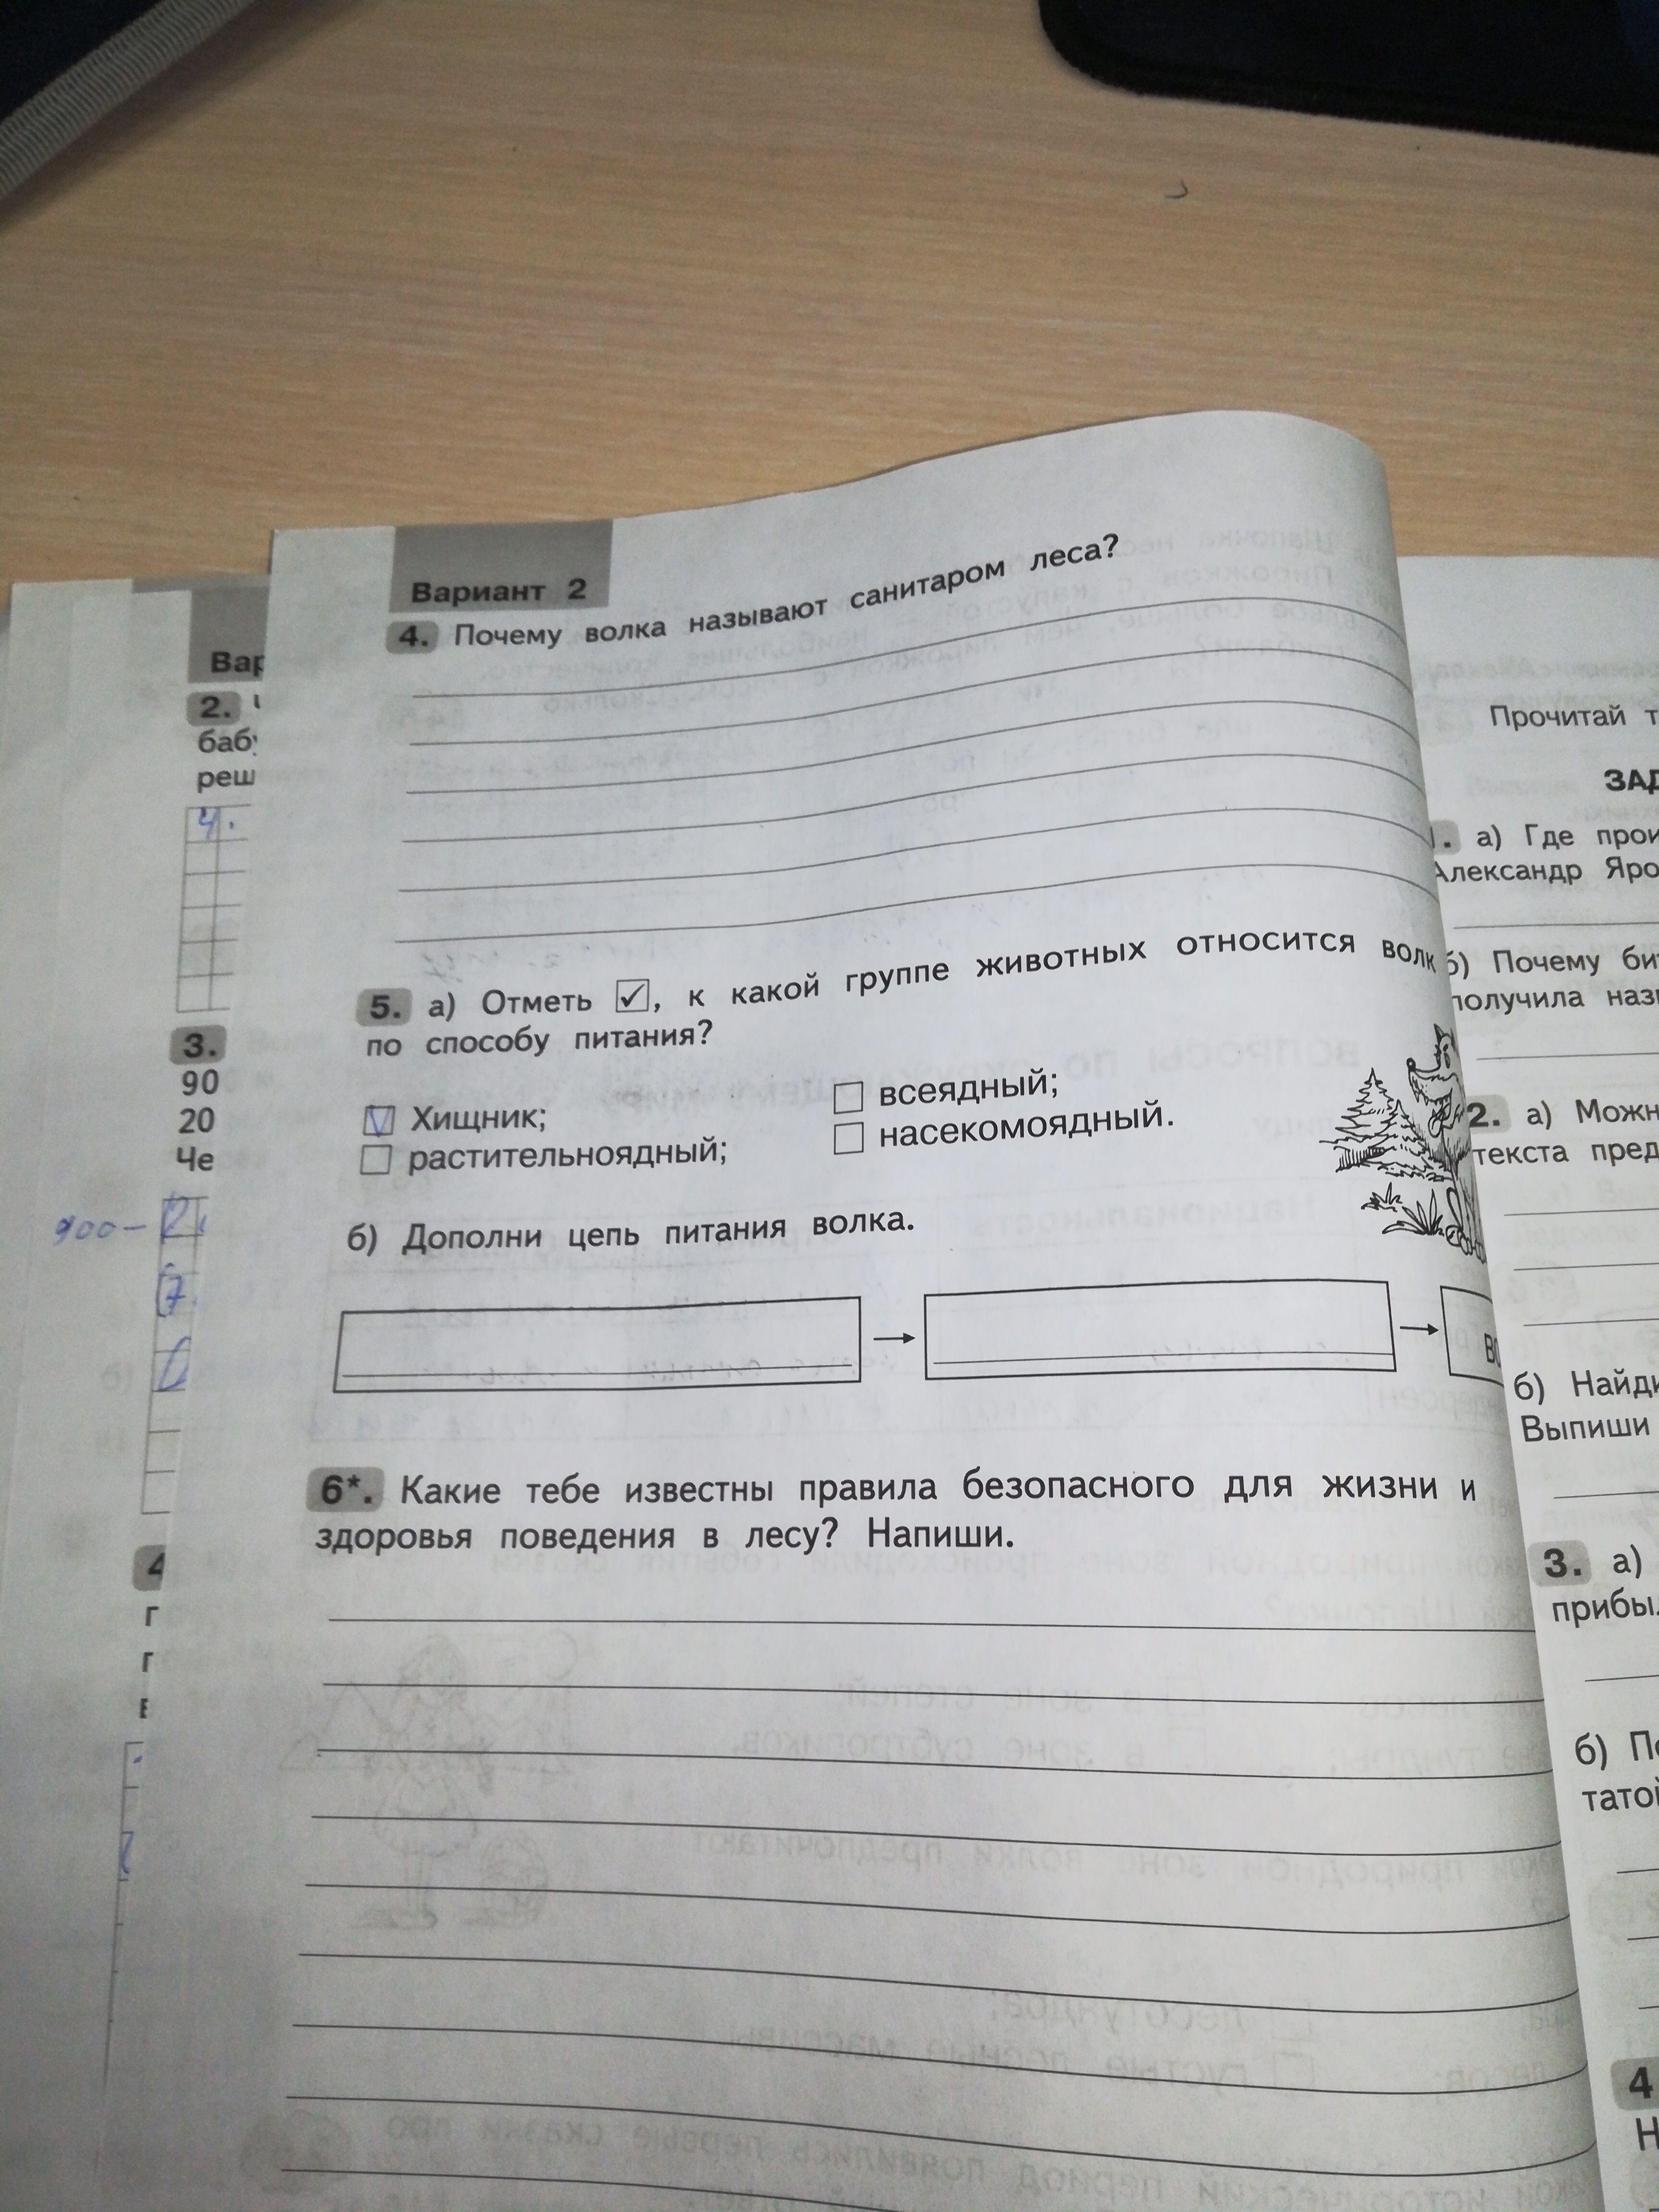 Вариант 2
4. Почему волка называют санитаром леса?
5. а) Отметь ☑, к какой группе животных относится волк
по способу питания?
Хищник;
растительноядный;
всеядный;
насекомоядный.
б) Дополни цепь питания волка.
6*. Какие тебе известны правила безопасного для жизни и
здоровья поведения в лесу? Напиши.
Вар
2.
баб
реш
4.
3.
90
20
Че
900 —
4
Прочитай т
ЗАД
. а) Где прои
Александр Яро
б) Почему би
получила наз
2. а) Можн
текста пред
б) Найди
Выпиши
3. а)
прибы
б) П
татой
4
Н